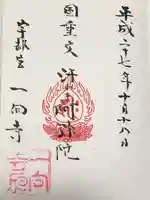 平成二十七年十月十八日
国重文 汗阿弥陀
宇都宮 一向寺